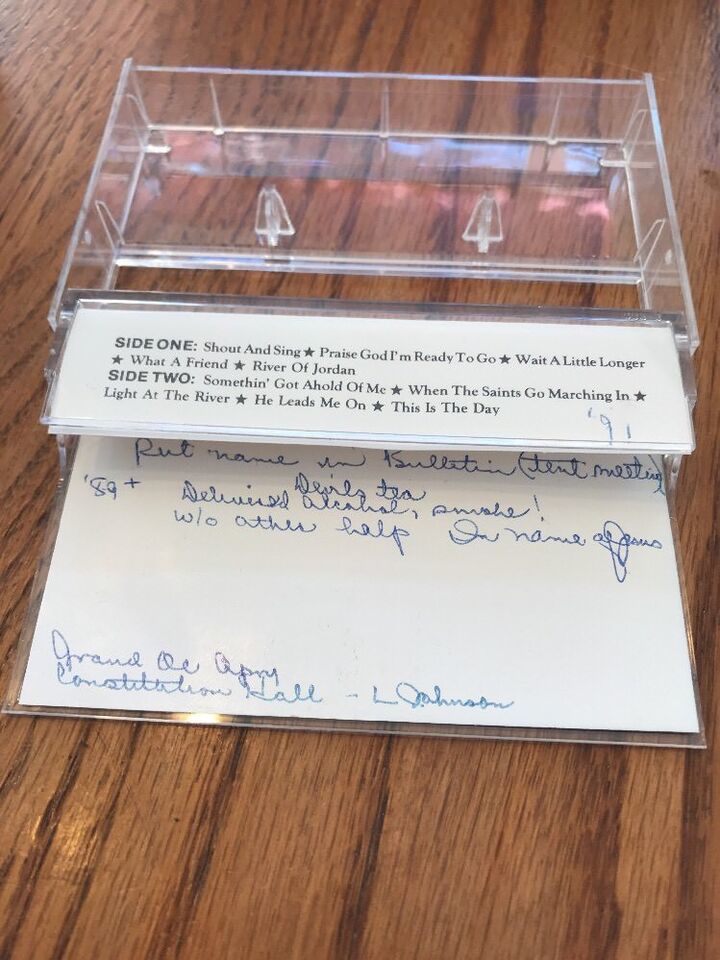 SIDE ONE: Shout And Sing ★ Praise God I'm Ready To Go ★ Wait A Little Longer
★ What A Friend ★ River Of Jordan
SIDE TWO: Somethin' Got Ahold Of Me ★ When The Saints Go Marching In ★
Light At The River ★ He Leads Me On ★ This Is The Day
'91
Put name in Bulletin (tent meeting)
Devils tea
'89+ Delivered alcohol, smoke!
w/o other help In name of Jesus
Grand Ole Opry
Constitution Hall - L Johnson